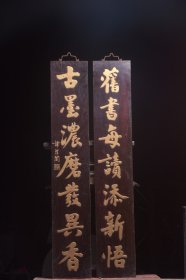 舊書每讀添新悟
古墨濃磨發異香